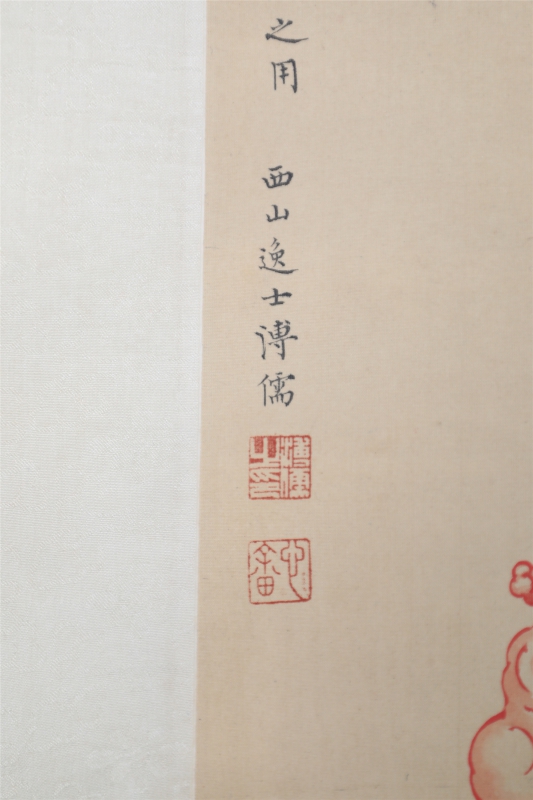 之用 西山逸士溥儒
溥儒之印
心畬